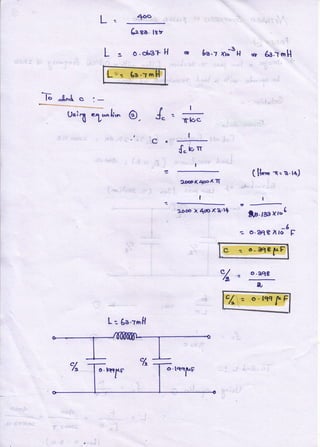 L = 400
6283.185
L = 0.0637 H = 63.7 x10⁻³H = 63.7mH
L = 63.7mH
To find C :-
Using equation ②, fc = 1
πkc
∴ C = 1
fc k π
= 1
2000 x 400 x π
(Here π = 3.14)
= 1
2000 x 400 x 3.14
= 0.398 x10⁻⁶ F
C = 0.398 μF
C/2 = 0.398
2
C/2 = 0.199 μF
L = 63.7mH
C/2
0.199μF
C/2
0.199μF